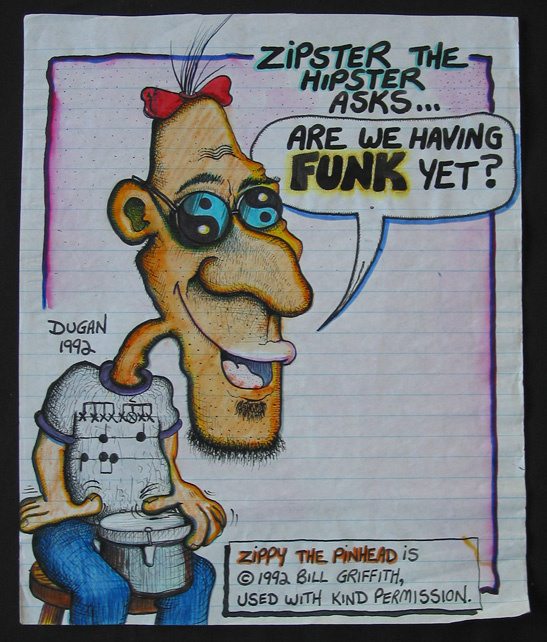 ZIPSTER THE
HIPSTER
ASKS...
ARE WE HAVING
FUNK YET?
DUGAN
1992
ZIPPY THE PINHEAD is
© 1992 BILL GRIFFITH,
USED WITH KIND PERMISSION.